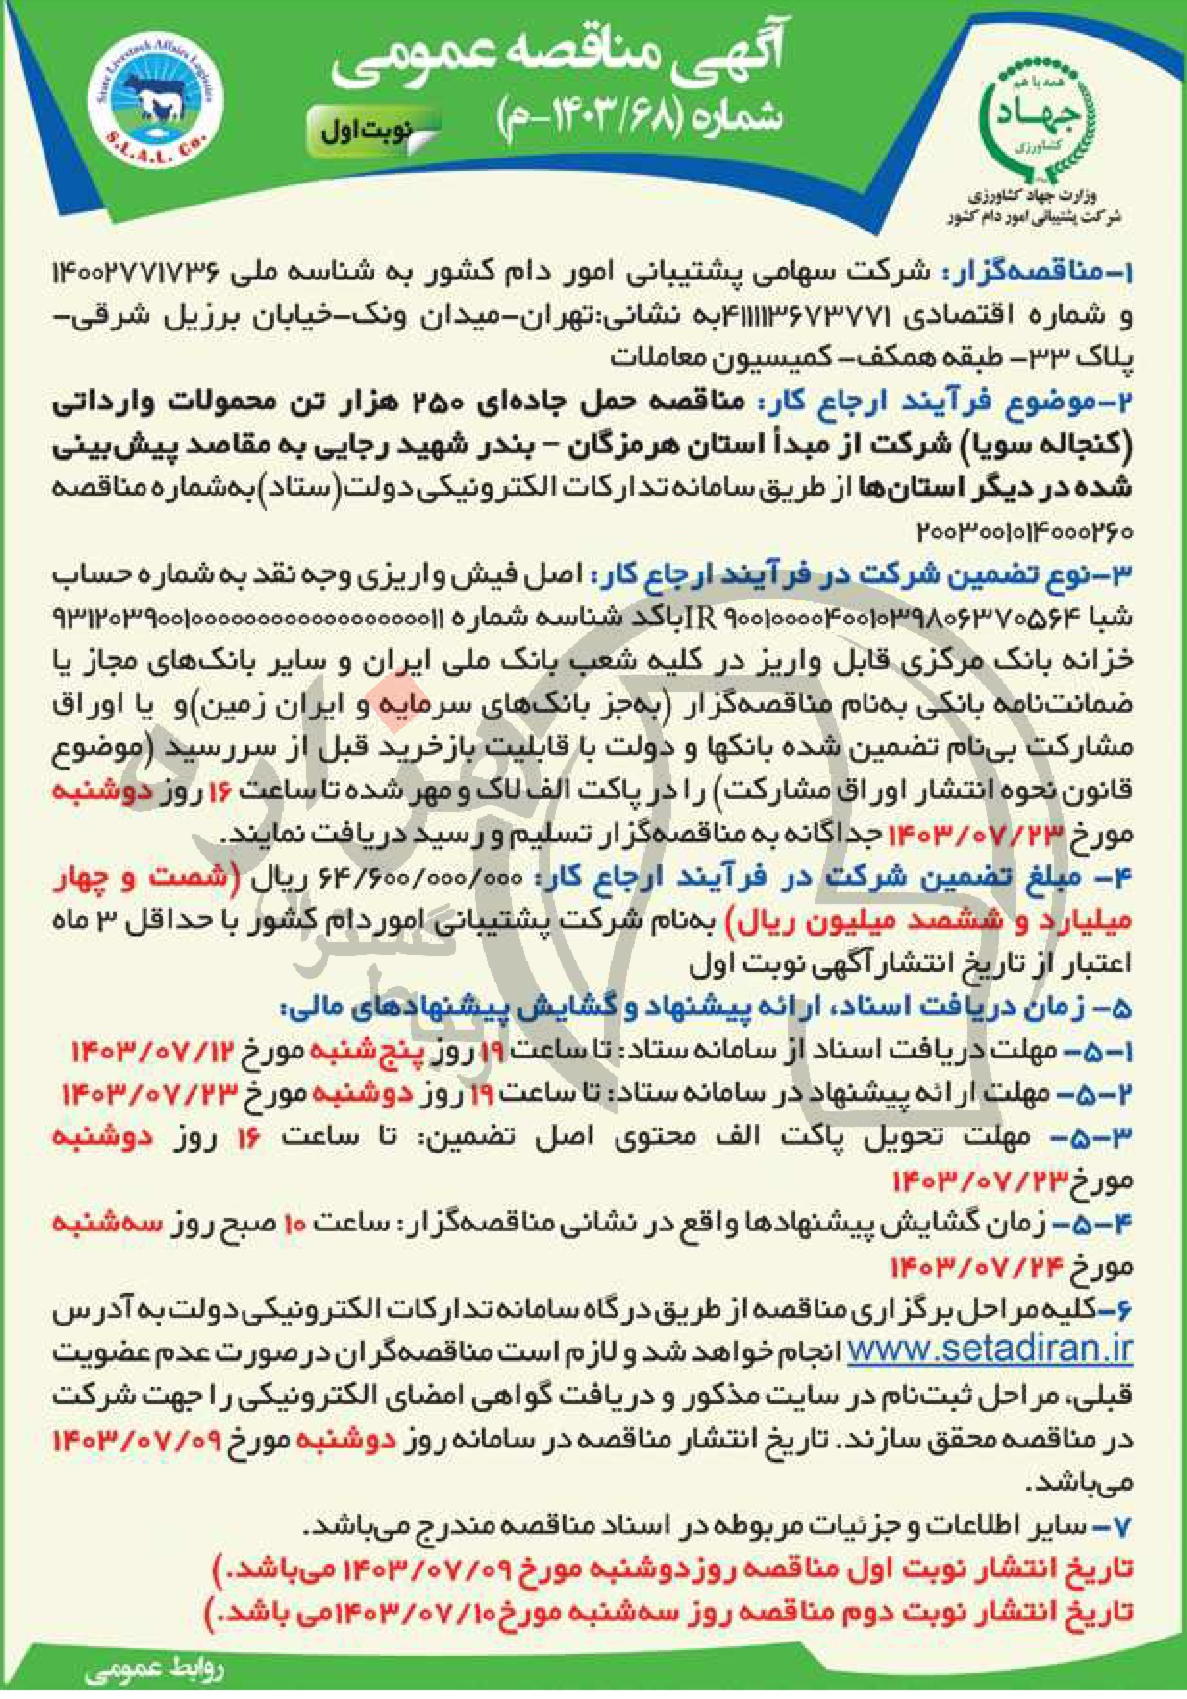 آگهی مناقصه عمومی
شماره (۱۴۰۳/۶۸-م)
نوبت اول
State Livestock Affairs Logistics
S.L.A.L. Co.
همه با هم
جهاد
کشاورزی
وزارت جهاد کشاورزی
شرکت پشتیبانی امور دام کشور
۱-مناقصه‌گزار: شرکت سهامی پشتیبانی امور دام کشور به شناسه ملی ۱۴۰۰۲۷۷۱۷۳۶
و شماره اقتصادی ۴۱۱۱۱۳۶۷۳۷۷۱به نشانی:تهران-میدان ونک-خیابان برزیل شرقی-
پلاک ۳۳- طبقه همکف- کمیسیون معاملات
۲-موضوع فرآیند ارجاع کار: مناقصه حمل جاده‌ای ۲۵۰ هزار تن محمولات وارداتی
(کنجاله سویا) شرکت از مبدأ استان هرمزگان - بندر شهید رجایی به مقاصد پیش‌بینی
شده در دیگر استان‌ها از طریق سامانه تدارکات الکترونیکی دولت(ستاد)به‌شماره مناقصه
۲۰۰۳۰۰۱۰۱۴۰۰۰۲۶۰
۳-نوع تضمین شرکت در فرآیند ارجاع کار: اصل فیش واریزی وجه نقد به شماره حساب
شبا IR ۹۰۰۱۰۰۰۰۴۰۰۱۰۳۹۸۰۶۳۷۰۵۶۴باکد شناسه شماره ۹۳۱۲۰۳۹۰۰۱۰۰۰۰۰۰۰۰۰۰۰۰۰۰۰۰۰۰۱۱
خزانه بانک مرکزی قابل واریز در کلیه شعب بانک ملی ایران و سایر بانک‌های مجاز یا
ضمانت‌نامه بانکی به‌نام مناقصه‌گزار (به‌جز بانک‌های سرمایه و ایران زمین)و یا اوراق
مشارکت بی‌نام تضمین شده بانکها و دولت با قابلیت بازخرید قبل از سررسید (موضوع
قانون نحوه انتشار اوراق مشارکت) را در پاکت الف لاک و مهر شده تا ساعت ۱۶ روز دوشنبه
مورخ ۱۴۰۳/۰۷/۲۳ جداگانه به مناقصه‌گزار تسلیم و رسید دریافت نمایند.
۴- مبلغ تضمین شرکت در فرآیند ارجاع کار: ۶۴/۶۰۰/۰۰۰/۰۰۰ ریال (شصت و چهار
میلیارد و ششصد میلیون ریال) به‌نام شرکت پشتیبانی اموردام کشور با حداقل ۳ ماه
اعتبار از تاریخ انتشارآگهی نوبت اول
۵- زمان دریافت اسناد، ارائه پیشنهاد و گشایش پیشنهادهای مالی:
۵-۱- مهلت دریافت اسناد از سامانه ستاد: تا ساعت ۱۹ روز پنج‌شنبه مورخ ۱۴۰۳/۰۷/۱۲
۵-۲- مهلت ارائه پیشنهاد در سامانه ستاد: تا ساعت ۱۹ روز دوشنبه مورخ ۱۴۰۳/۰۷/۲۳
۵-۳- مهلت تحویل پاکت الف محتوی اصل تضمین: تا ساعت ۱۶ روز دوشنبه
مورخ۱۴۰۳/۰۷/۲۳
۵-۴- زمان گشایش پیشنهادها واقع در نشانی مناقصه‌گزار: ساعت ۱۰ صبح روز سه‌شنبه
مورخ ۱۴۰۳/۰۷/۲۴
۶-کلیه مراحل برگزاری مناقصه از طریق درگاه سامانه تدارکات الکترونیکی دولت به آدرس
www.setadiran.ir انجام خواهد شد و لازم است مناقصه‌گران در صورت عدم عضویت
قبلی، مراحل ثبت‌نام در سایت مذکور و دریافت گواهی امضای الکترونیکی را جهت شرکت
در مناقصه محقق سازند. تاریخ انتشار مناقصه در سامانه روز دوشنبه مورخ ۱۴۰۳/۰۷/۰۹
می‌باشد.
۷- سایر اطلاعات و جزئیات مربوطه در اسناد مناقصه مندرج می‌باشد.
تاریخ انتشار نوبت اول مناقصه روزدوشنبه مورخ ۱۴۰۳/۰۷/۰۹ می‌باشد.)
تاریخ انتشار نوبت دوم مناقصه روز سه‌شنبه مورخ۱۴۰۳/۰۷/۱۰می باشد.)
روابط عمومی